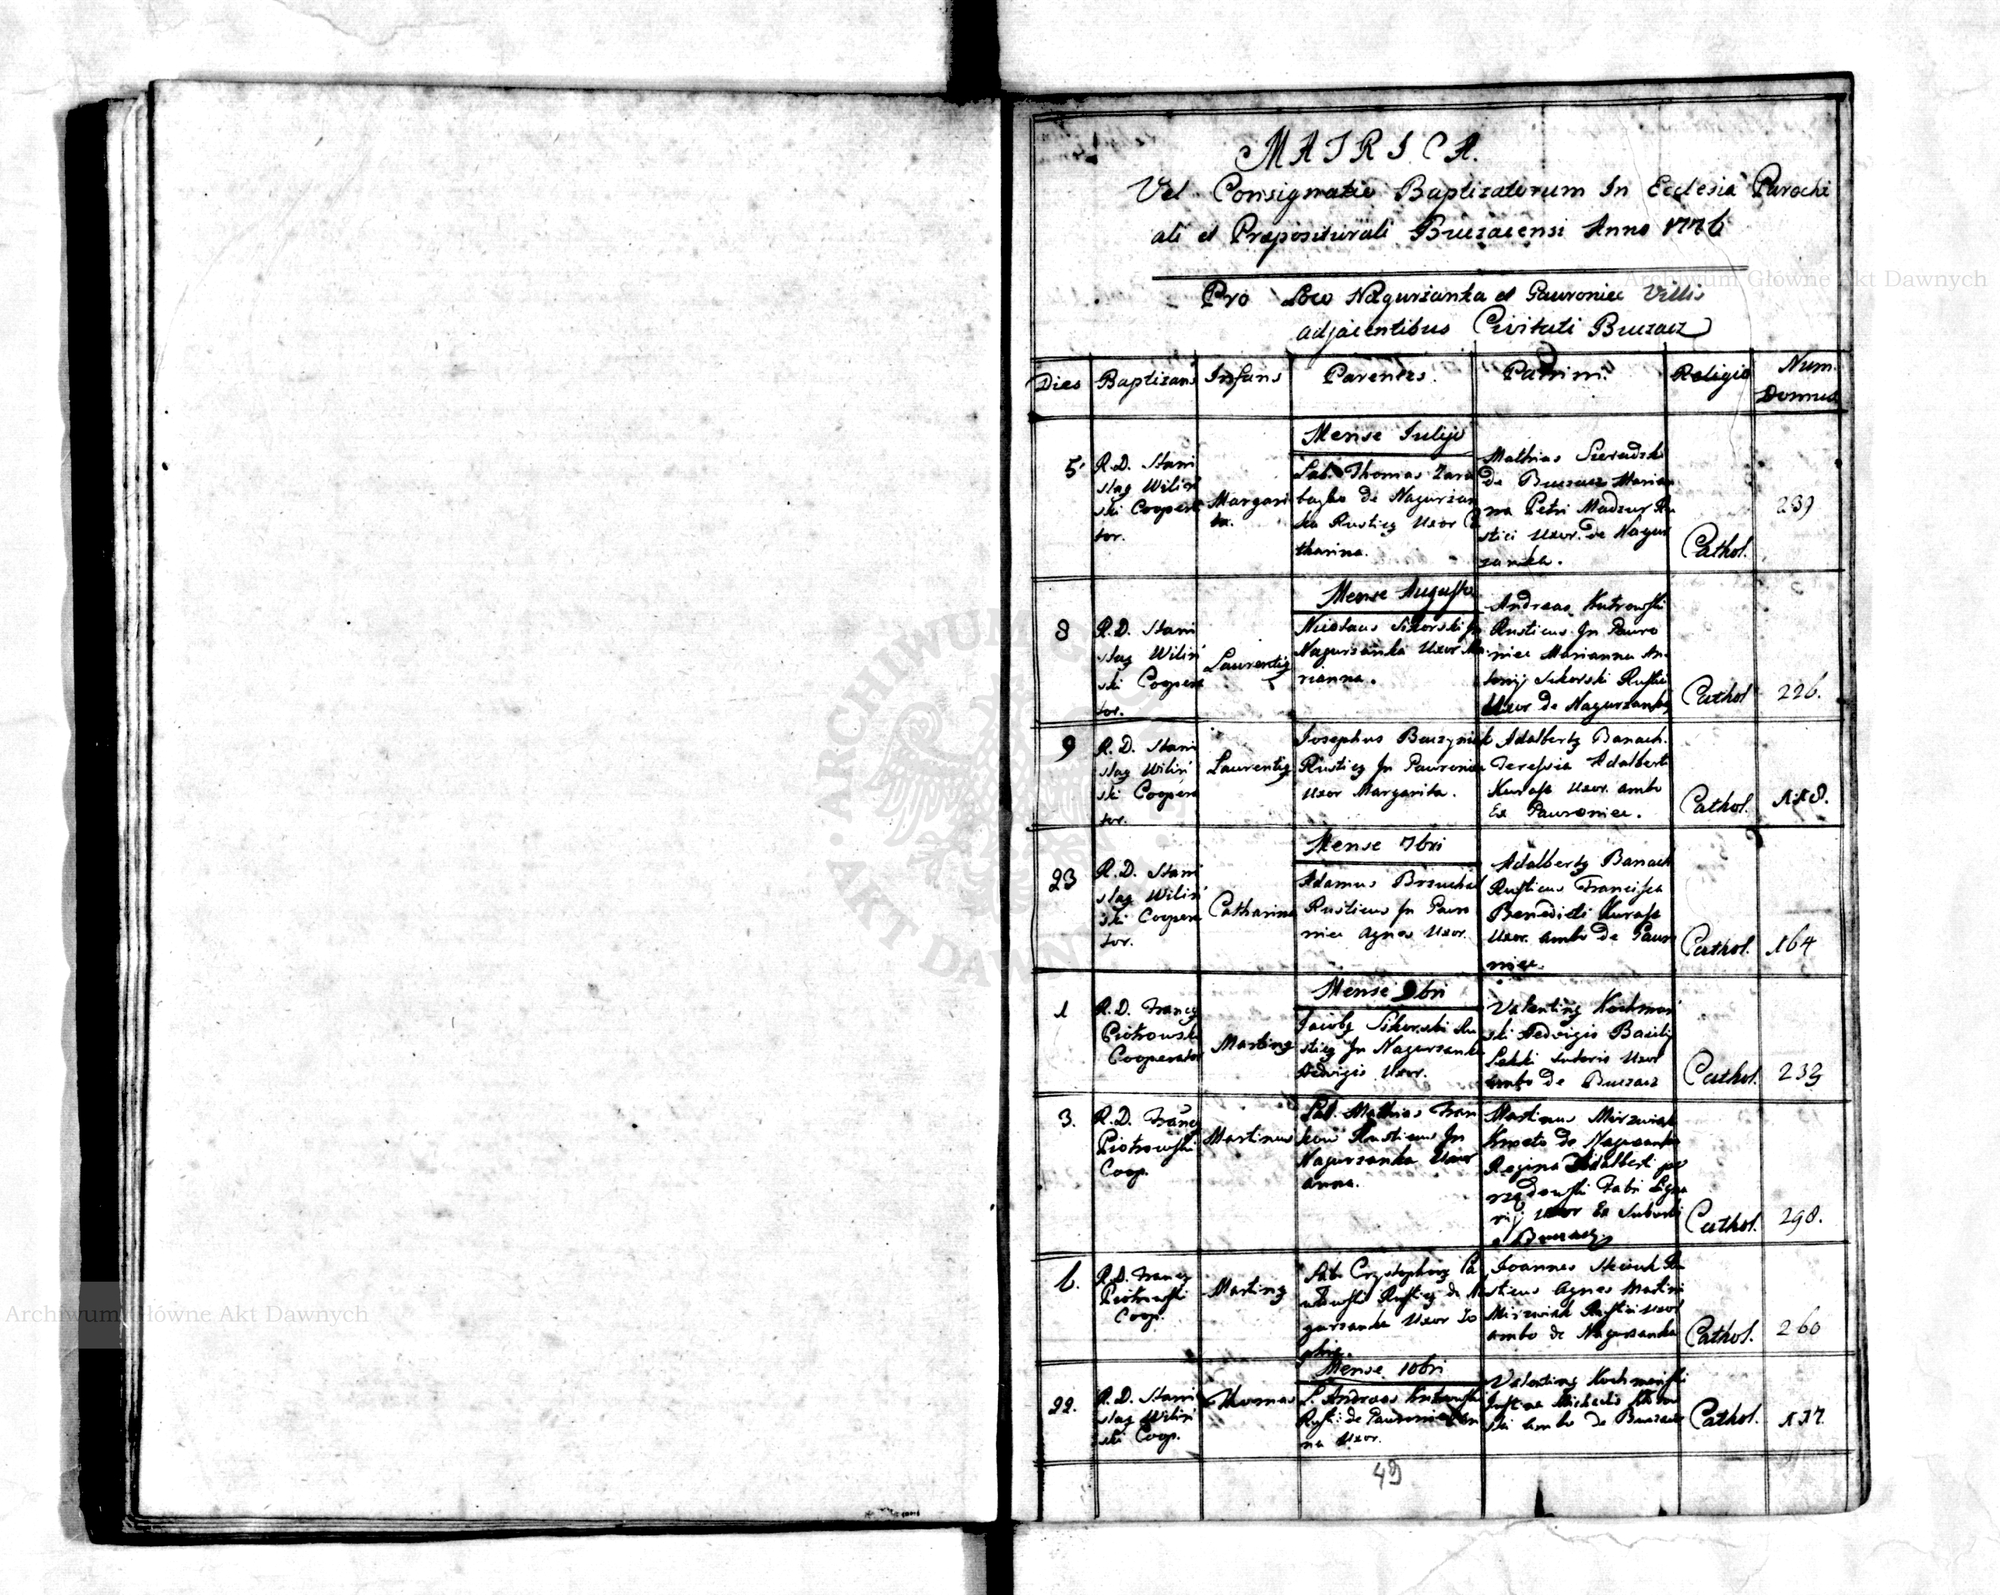 MATRICA.
Vel Consignatio Baptizatorum In Ecclesia Parochi
ali et Præpositurali Buczacensi Anno 1776
Pro Loco Nagurzanka et Pauroniec Villis
adjacentibus Civitati Buczacz
Dies Baptizans Infans Parentes. Patrini. Religio Num. Domus
Mense Julij
5
R.D. Stani
slaq Wiliń
ski Coopera
tor.
Margari
ta.
Lab. Thomas
de Nagurzan
ka Rusticq Uxor Ca
tharina.
Mathias
de Buczacz Marian
na Petri Madzur Ru
stici Uxor. de Nagur
zanka.
Cathol.
239
Mense Augusto
8
R.D. Stani
slaq Wiliń
ski Coopera
tor.
Laurentiq
Nicolaus Sikorski In
Nagurzanka Uxor Ma
rianna.
Andreas Kutrowski
Rusticus In Pauro
niec Marianna An
tonij Sikorski Rustici
Uxor de Nagurzanka
Cathol
226.
9
R.D. Stani
slaq Wiliń
ski Coopera
tor.
Laurentiq
Josephus
Rusticq In Pauroniec
Uxor Margarita.
Adalbertq Banach.
Teressia Adalberti
Kurasz Uxor. ambo
Ex Pauroniec.
Cathol.
118.
Mense 7bri
23
R.D. Stani
slaq Wiliń
ski Coopera
tor.
Catharina
Adamus Brzuchal
Rusticus In Pauro
niec Agnes Uxor.
Adalbertq Banach
Rusticus Francisca
Benedicti Kurasz
Uxor. ambo de Pauro
niec.
Cathol.
164
Mense 9bri
1
R.D. Francq
Piotrowski
Cooperator
Martinq
Jacobq Sikorski Ru
sticq In Nagurzanka
Hedvigis Uxor.
Valentinq Kochman
ski Hedvigis Basilij
Sutoris Uxor
ambo de Buczacz
Cathol.
233
3.
R.D. Francq
Piotrowski
Coop.
Martinus
Lab. Mathias Fran
kow Rusticus In
Nagurzanka Uxor
Anna.
Martinus Mirzwiak
Kmeto de Nagurzanka
Regina Adalberti
Fabri Ligna
rij Uxor Ex Suburbio
Buczacz
Cathol.
298.
6.
R.D. Francq
Piotrowski
Coop.
Martinq
Lab. Crystophorq
Rusticq de Na
gurzanka Uxor So
phia.
Joannes Ru
sticus Agnes Martini
Mirzwiak Rustici Uxor
ambo de Nagurzanka
Cathol.
260
Mense 10bri
22.
R.D. Stani
slaq Wiliń
ski Coop.
Thomas
L. Andreas Kutrowski
Rusti: de Pauroniec An
na Uxor.
Valentinq Kochmański
Justina Michaelis
ski ambo de Buczacz
Cathol.
137.
49
Archiwum Główne Akt Dawnych
Archiwum Główne Akt Dawnych
ARCHIWUM GŁÓWNE AKT DAWNYCH